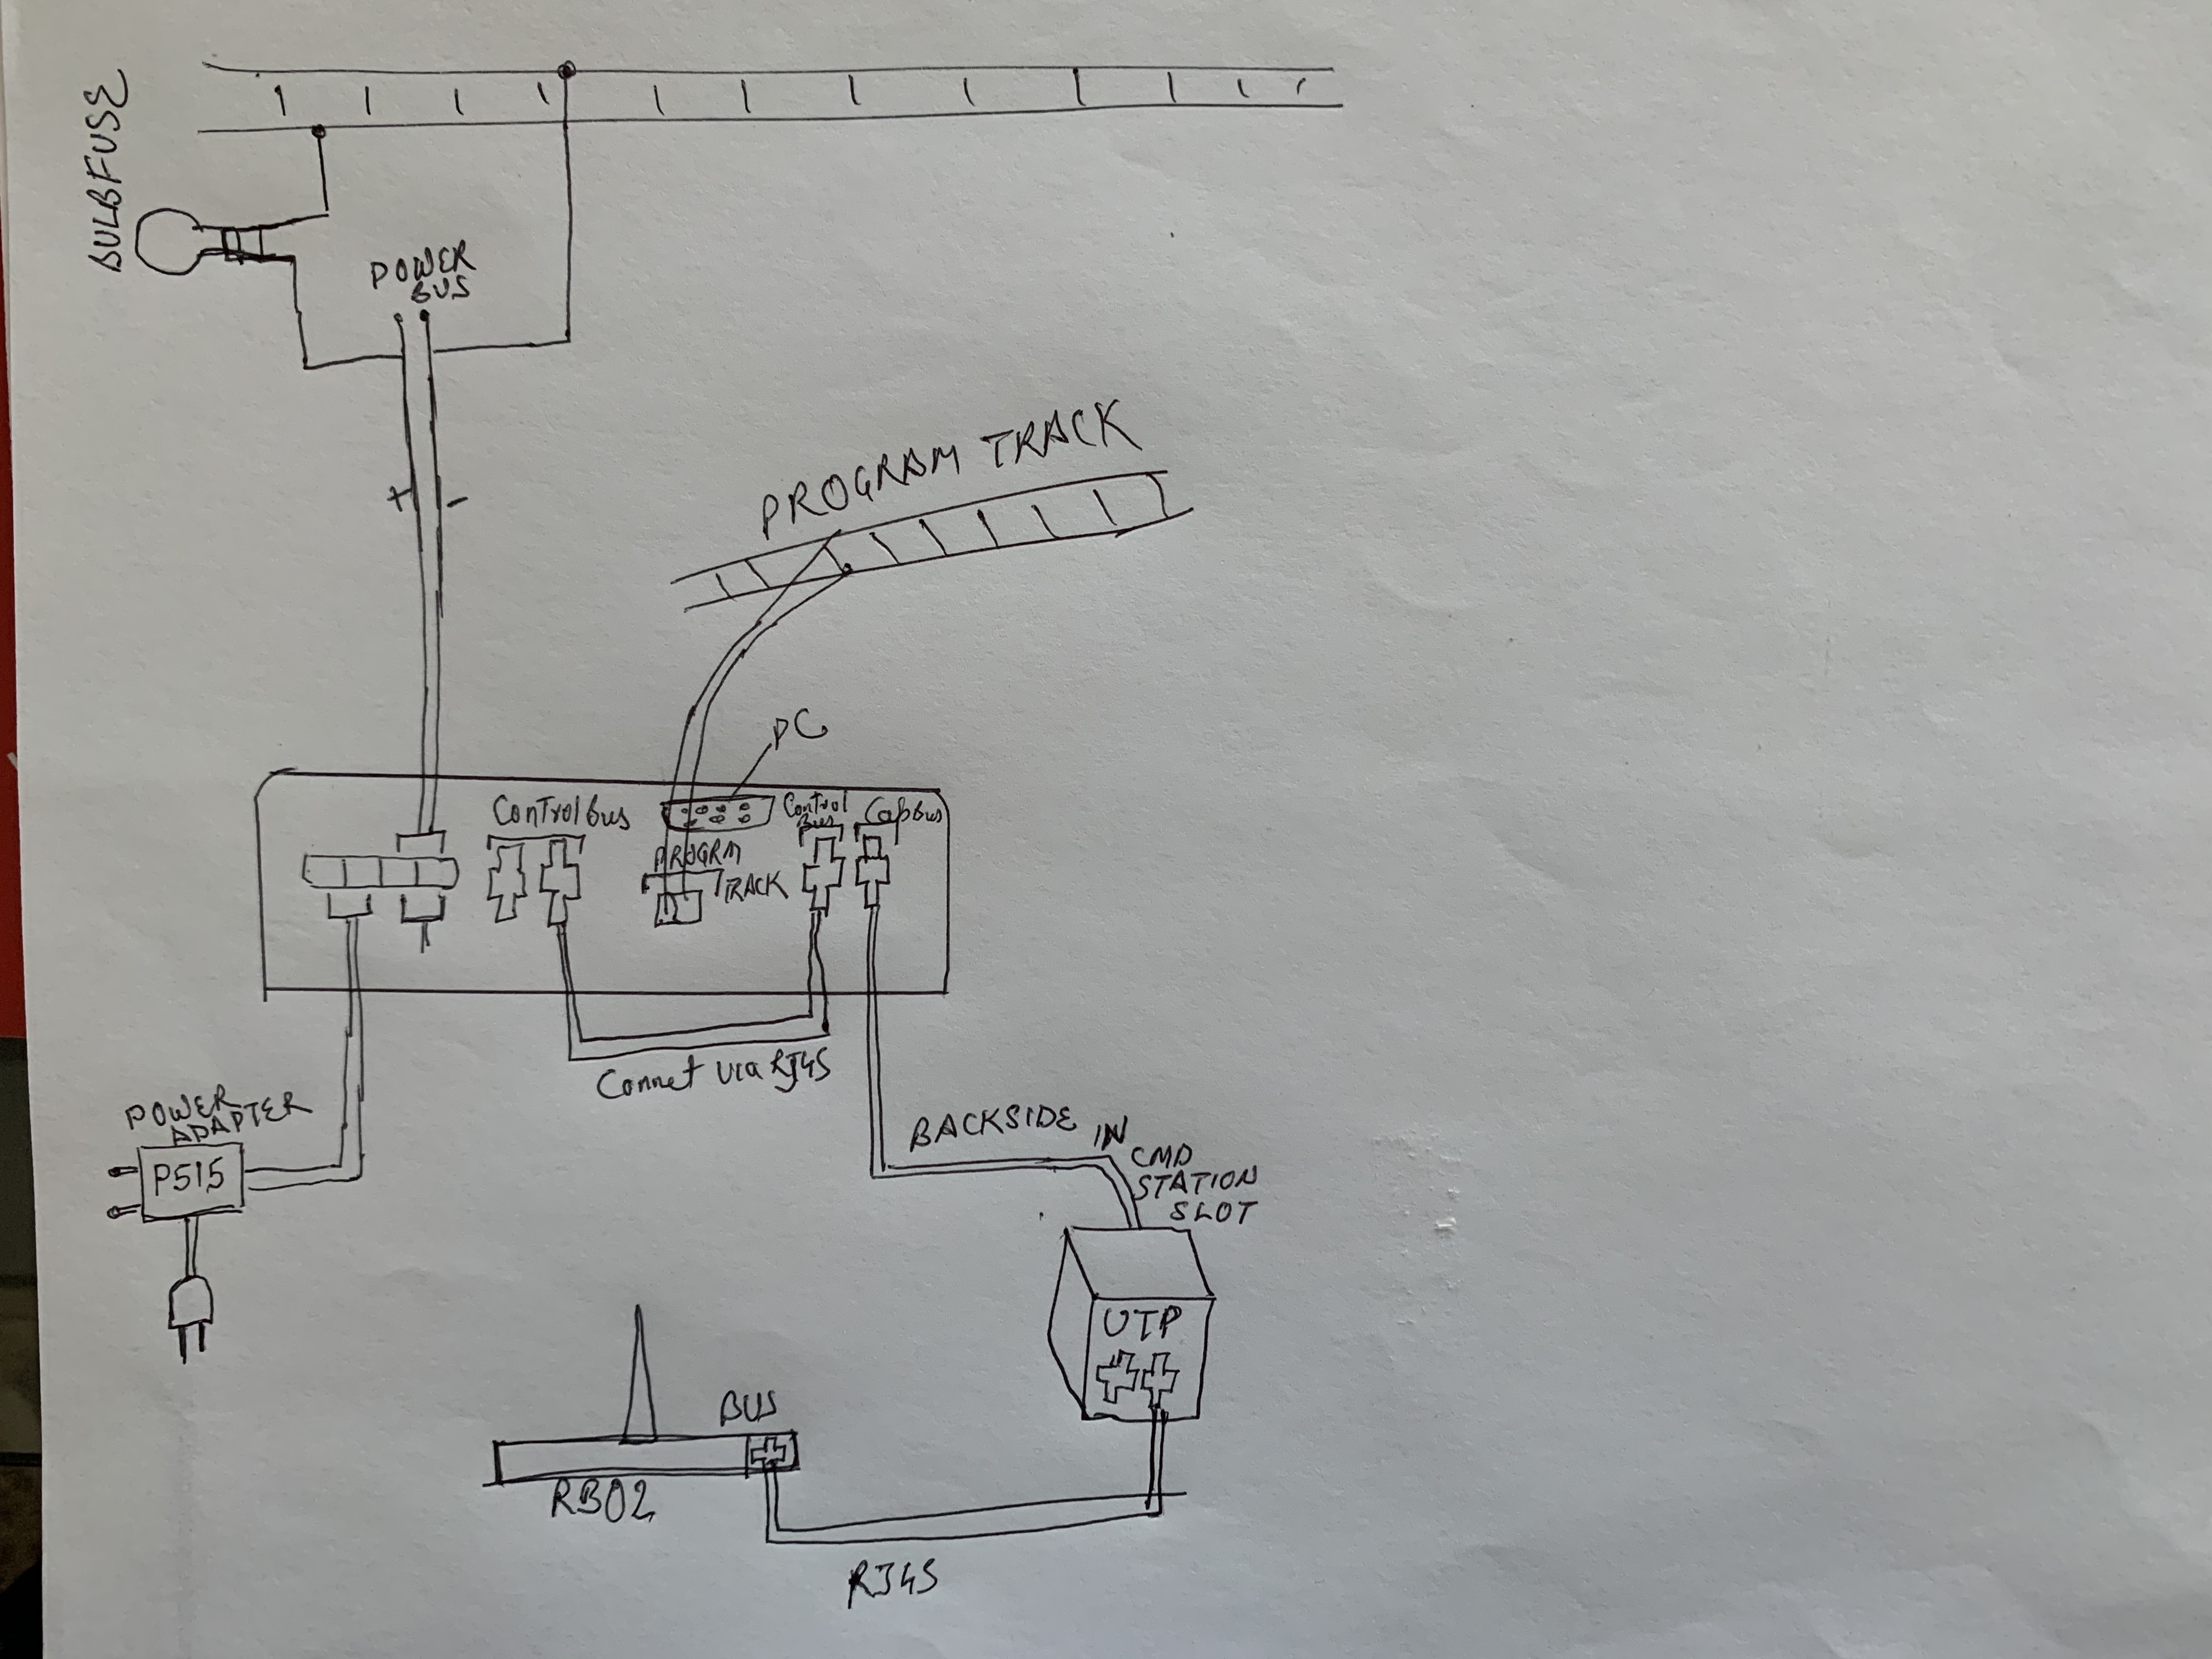 BULB FUSE
POWER
BUS
+ -
PROGRAM TRACK
PC
Control Bus
Control
Bus
Cab Bus
PROGRM
TRACK
Connet via RJ45
POWER
ADAPTER
P515
BACKSIDE IN
CMD
STATION
SLOT
UTP
BUS
RB02
RJ45